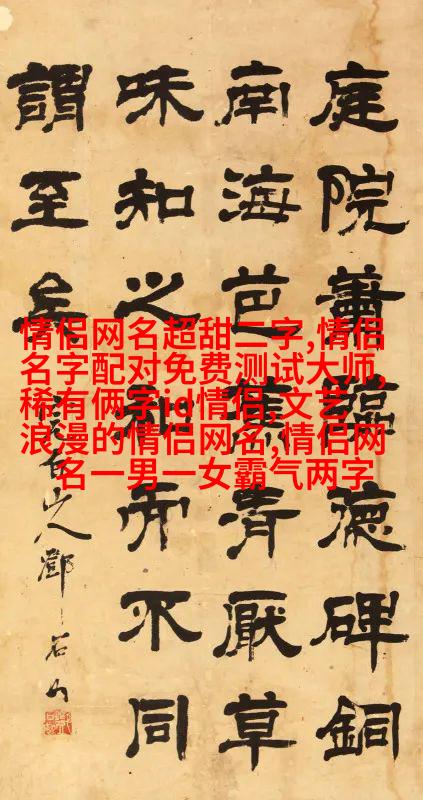 庭院蕭臨德碑銅
南海芭蕉清厭草
味知之和而不同
謂至矣
完白山人鄧石如
情侣网名超甜二字,情侣
名字配对免费测试大师,
稀有俩字id情侣,文艺
浪漫的情侣网名,情侣网
名一男一女霸气两字